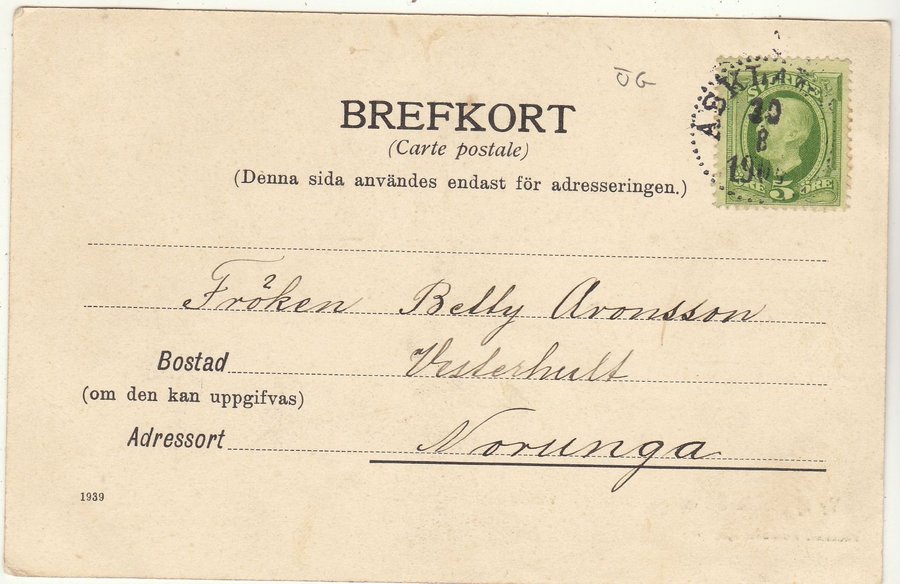 ÖG
BREFKORT
(Carte postale)
(Denna sida användes endast för adresseringen.)
30
8
5 ÖRE
Fröken Betty Aronsson
Bostad Vesterhult
(om den kan uppgifvas)
Adressort Norunga
1939